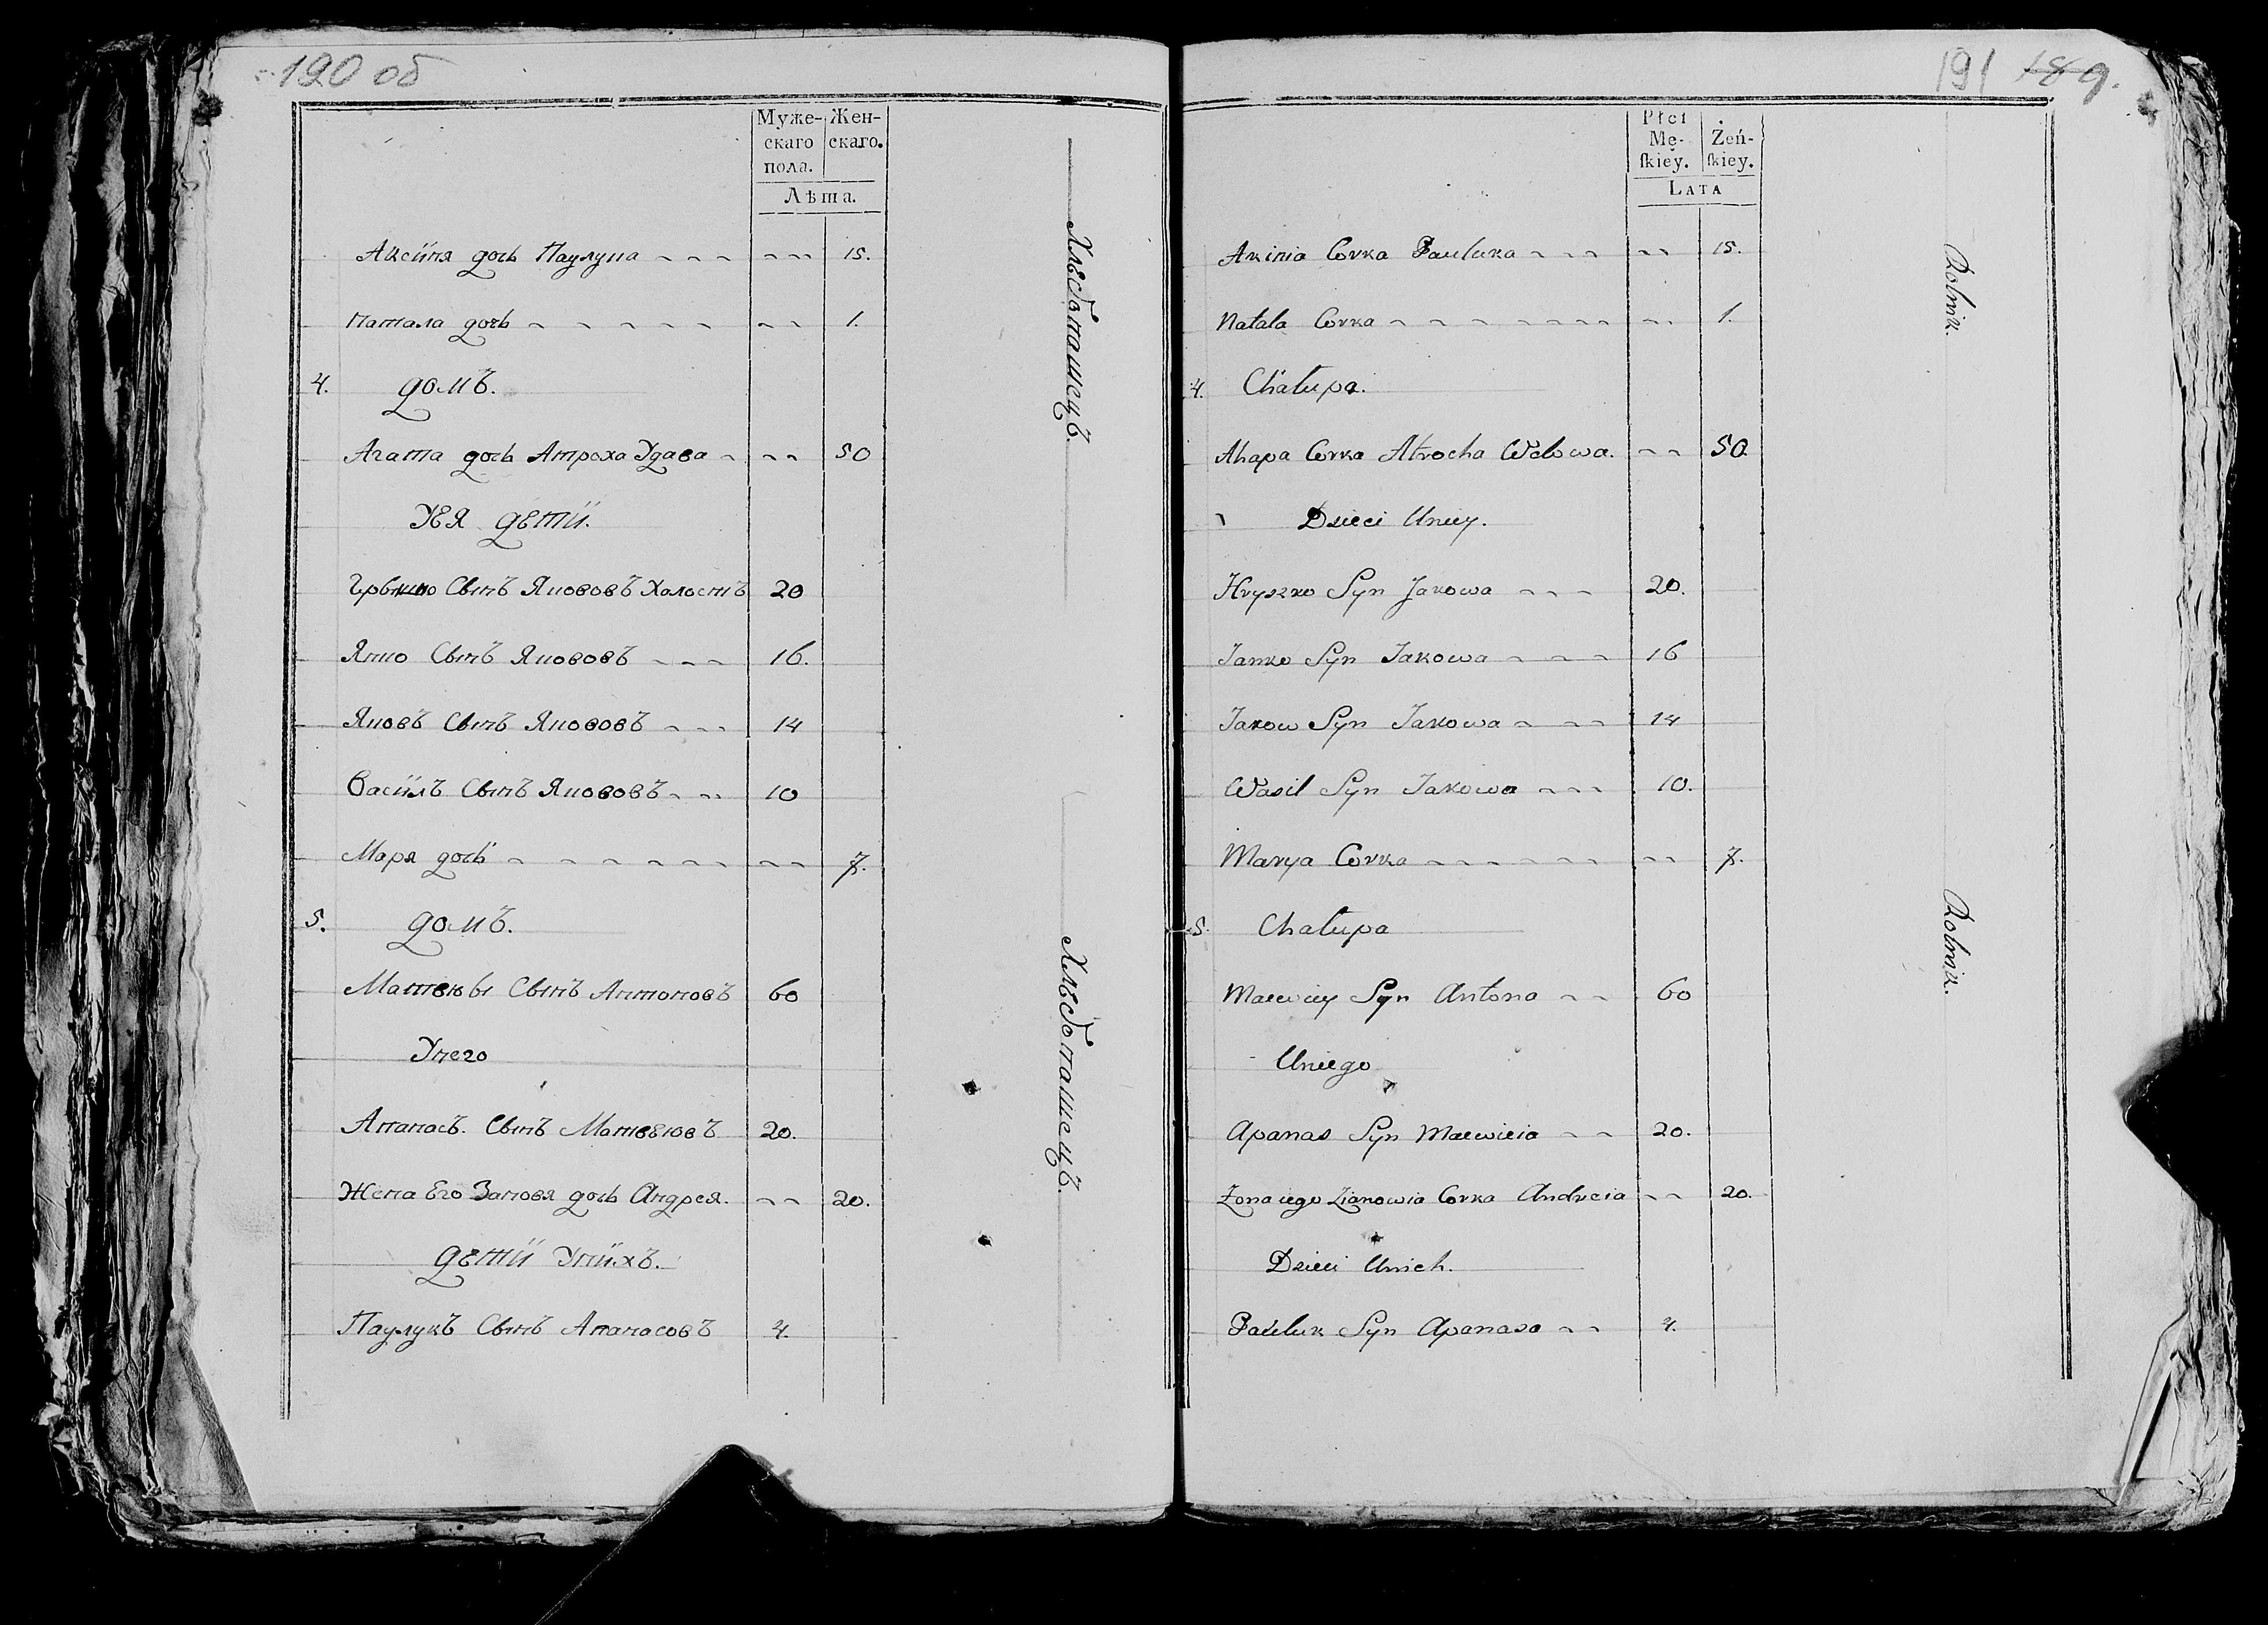 190 об
Муже-
скаго
пола.
Жен-
скаго.
Лѣта.
Аксиня дочь Паулука 15.
Натала дочь 1.
4. домъ.
Агата дочь Атроха Удава 50
Уея дети.
Грышко Сынъ Яковъ Холостъ 20
Янко Сынъ Якововъ 16.
Яковъ Сынъ Якововъ 14
Василъ Сынъ Якововъ 10
Маря дочь 7.
5. домъ.
Матвеы Сынъ Антоновъ 60
Унего
Апанасъ. Сынъ Матвеювъ 20.
Жена Его Зановя дочь Андрея. 20.
дети Унихъ.
Паулукъ Сынъ Апанасовъ 4.
Хлебопашецъ.
Хлебопашецъ.
191 189.
Płci
Mę-
ſkiey.
Żeń-
ſkiey.
LATA
Axinia Corka Pauluka 15.
Natala Corka 1.
4. Chałupa.
Ahapa Corka Atrocha Wdowa. 50
Dzieci Uniey.
Hryszko Syn Jakowa 20.
Janko Syn Jakowa 16
Jakow Syn Jakowa 14
Wasil Syn Jakowa 10.
Marya Corka 7.
5. Chałupa
Macwiey Syn Antona 60
Uniego
Apanas Syn Macwieia 20.
Żona iego Zianowia Corka Andreia 20.
Dzieci Unich.
Pauluk Syn Apanasa 4.
Rolnik.
Rolnik.